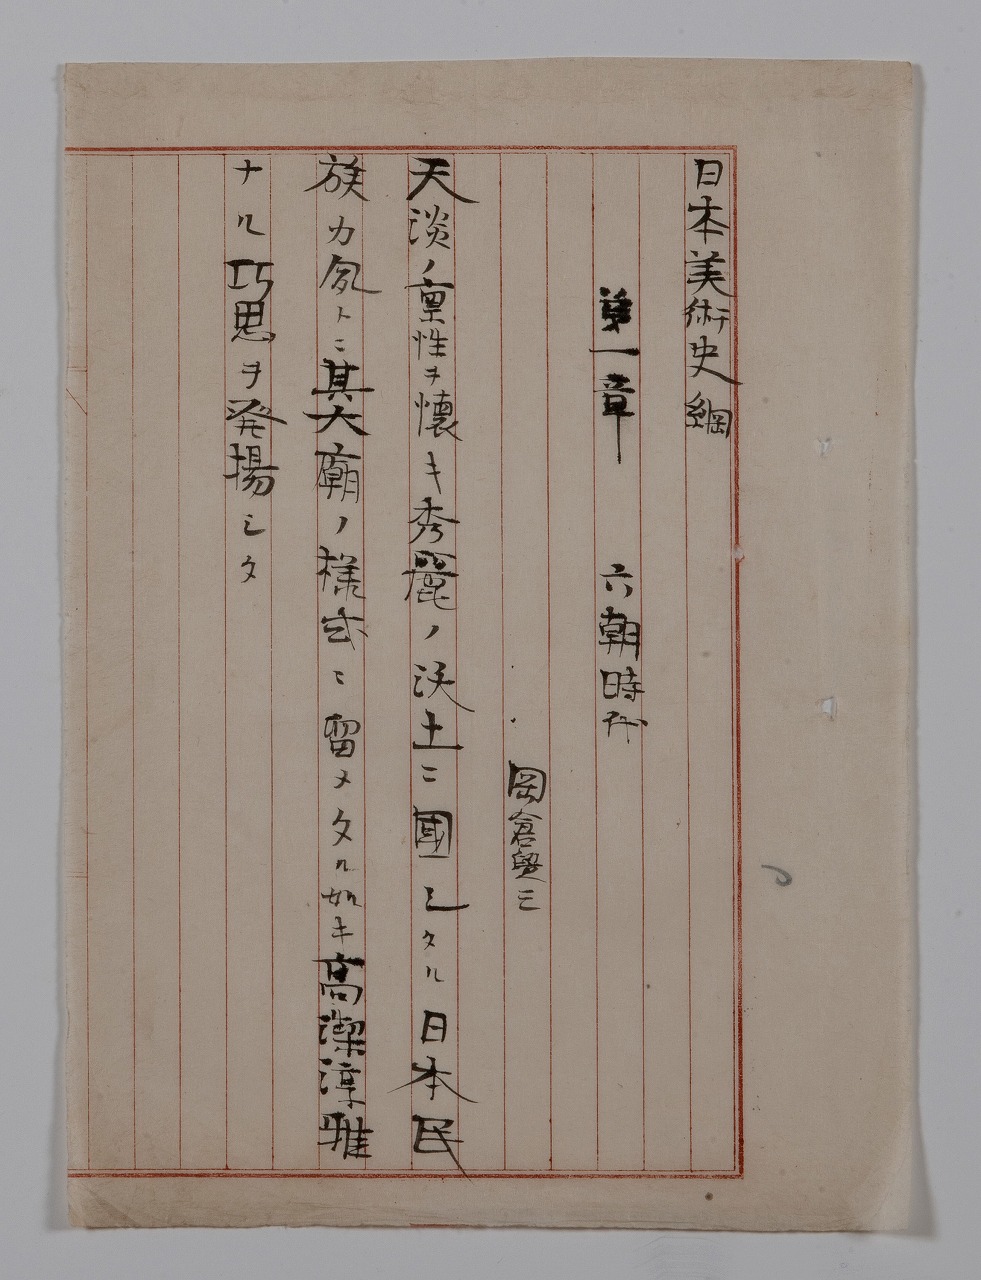 日本美術史綱
第一章 六朝時代
岡倉覺三
天淡ノ稟性ヲ懐キ秀麗ノ沃土ニ國シタル日本民
族カ夙トニ其大廟ノ様式ニ留メタル如キ高潔淳雅
ナル巧思ヲ発揚シタ